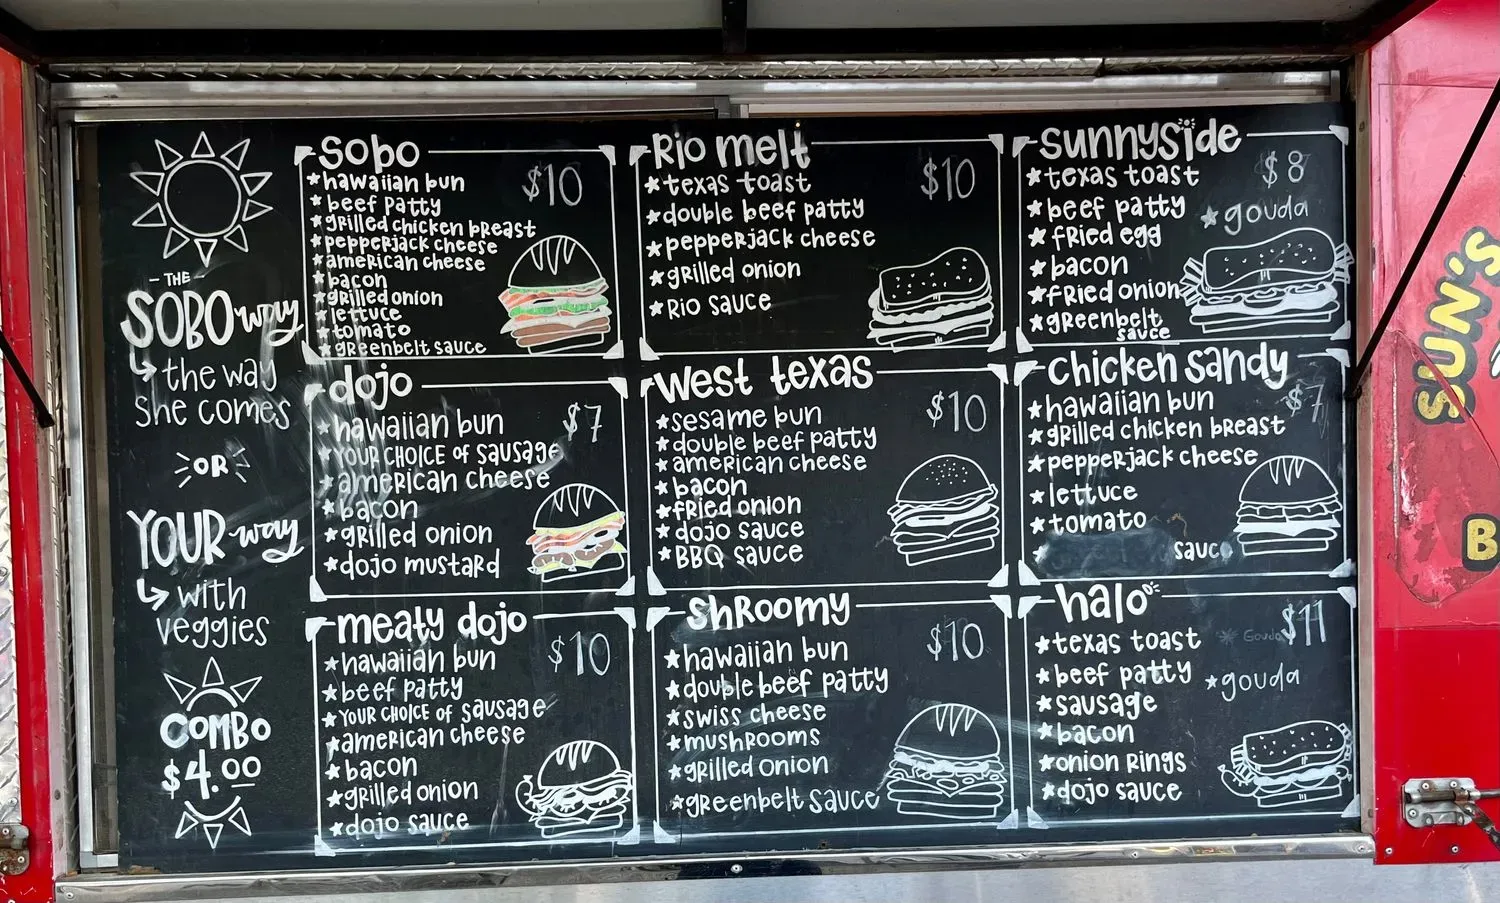 THE
SOBO way
the way
she comes
OR
YOUR way
with
veggies
COMBO
$4.00
Sobo
$10
*hawaiian bun
*beef patty
*grilled chicken breast
*pepperjack cheese
*american cheese
*bacon
*grilled onion
*lettuce
*tomato
*greenbelt sauce
dojo
$7
*hawaiian bun
*YOUR CHOICE of sausage
*american cheese
*bacon
*grilled onion
*dojo mustard
meaty dojo
$10
*hawaiian bun
*beef patty
*YOUR CHOICE of sausage
*american cheese
*bacon
*grilled onion
*dojo sauce
Rio melt
$10
*texas toast
*double beef patty
*pepperjack cheese
*grilled onion
*Rio sauce
West texas
$10
*sesame bun
*double beef patty
*american cheese
*bacon
*fried onion
*dojo sauce
*BBQ sauce
shroomy
$10
*hawaiian bun
*double beef patty
*swiss cheese
*mushrooms
*grilled onion
*greenbelt sauce
sunnyside
$8
*texas toast
*beef patty
*gouda
*fried egg
*bacon
*fried onion
*greenbelt
sauce
chicken sandy
$7
*hawaiian bun
*grilled chicken breast
*pepperjack cheese
*lettuce
*tomato
sauce
halo
$11
*texas toast
* Gouda
*beef patty
*gouda
*sausage
*bacon
*onion rings
*dojo sauce
SUN'S
B